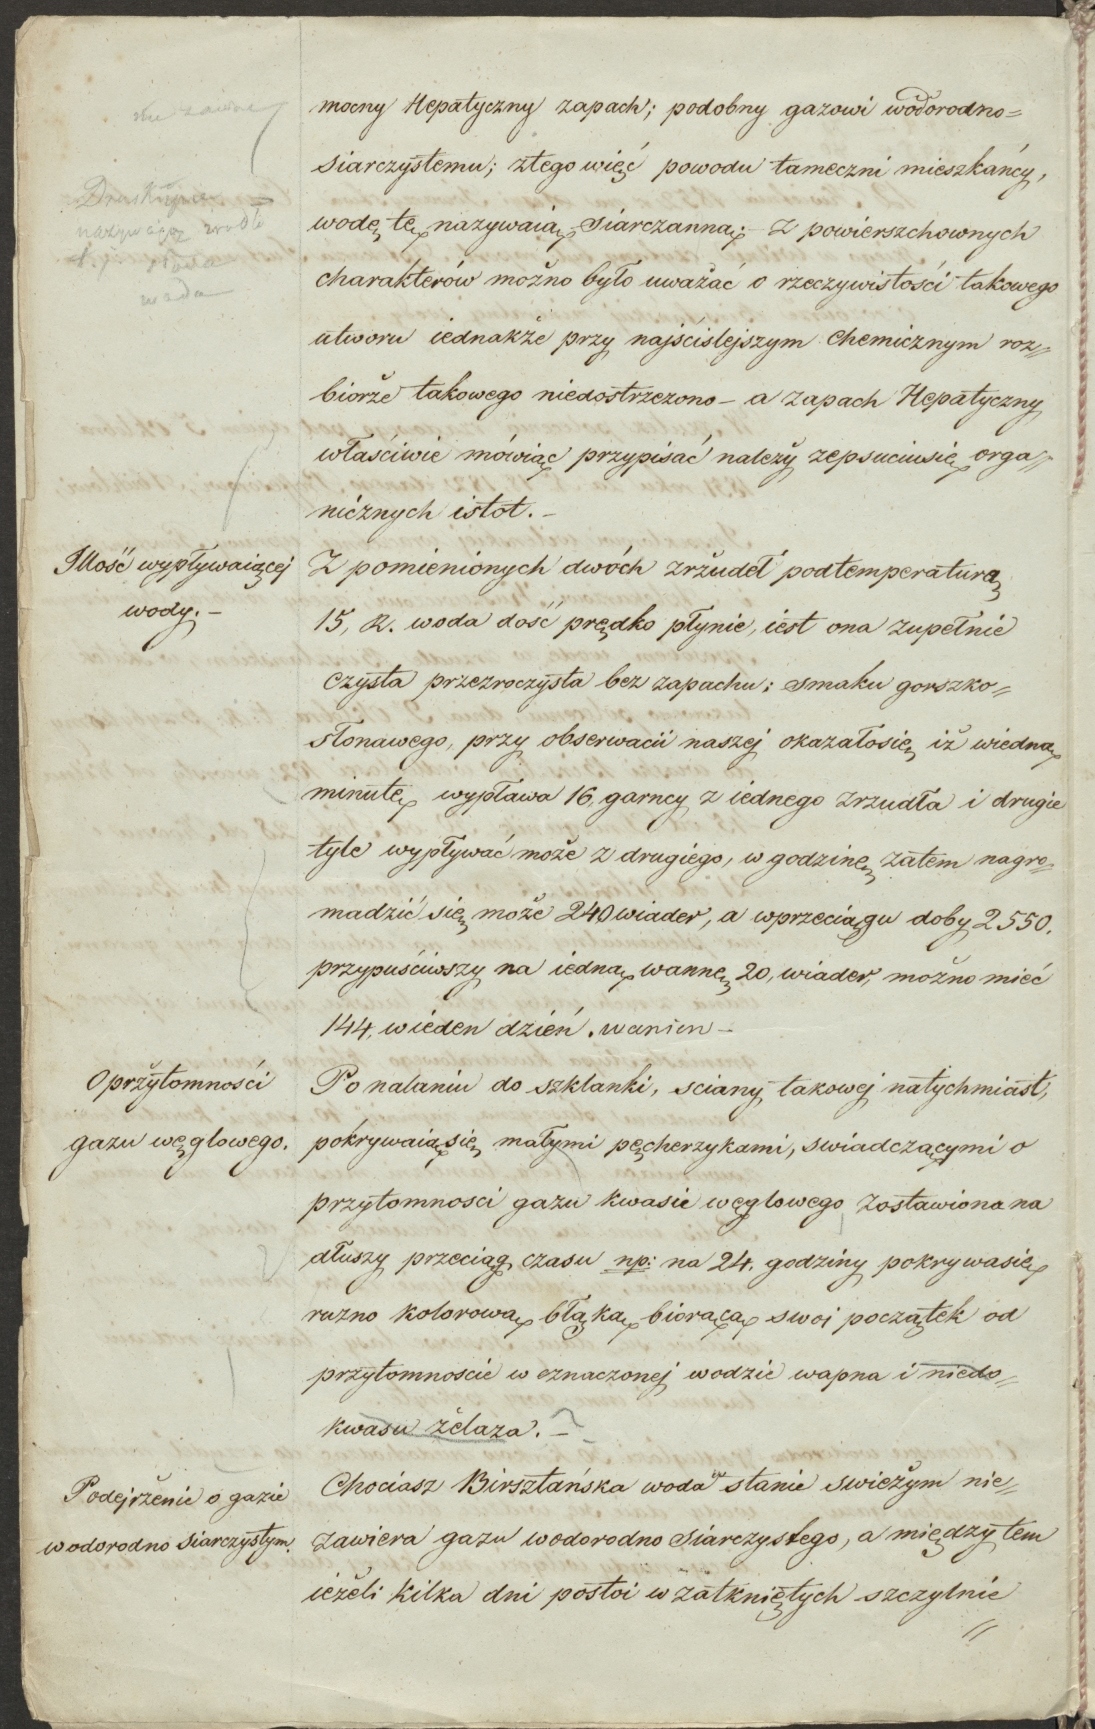 nie zawsze
mocny Hepatyczny zapach; podobny gazowi wodorodno=
siarczystemu; ztego więć powodu tameczni mieszkańcy,
wodę tę nazywaią Siarczanną; Z powierszchownych
nazywają
woda
charakterów możno było uważać o rzeczywistości takowego
utworu iednakże przy najściślejszym Chemicznym roz=
biorże takowego niedostrzezono – a zapach Hepatyczny
właściwie mówiąc przypisać należy zepsuciusię orga=
nicznych istot. –
Illość wypływaiącej
wody. –
Z pomienionych dwóch zrżudeł podtemperaturą
15, R. woda dość prędko płynie, iest ona zupełnie
czysta przezroczysta bez zapachu; smaku gorszko=
słonawego, przy obserwacii naszej okazałosię iż wiedną
minutę wypława 16, garncy z iednego zrzudła i drugie
tyle wypływać może z drugiego, w godzinę zatem nagro=
madzić się może 240 wiader, a wprzeciągu doby 2550.
przypuściwszy na iedną wannę 20, wiader, możno mieć
144, wieden dzień. wanien –
O przytomności
gazu węglowego.
Po nalaniu do szklanki, sciany takowej natychmiast,
pokrywaiąsię małymi pęcherzykami, swiadczącymi o
przytomnosci gazu kwasie węglowego zostawiona na
dłuszy przeciąg czasu np: na 24. godziny pokrywasię
ruzno kolorową błąką biorącą swoi początek od
przytomnoscie w oznaczonej wodzie wapna i niedo=
kwasu żelaza. –
Podejrżenie o gazie
wodorodno siarczystym.
Chociasz Birsztańska woda w stanie swieżym nie=
zawiera gazu wodorodno Siarczystego, a między tem
ieżeli kilka dni postoi w zatkniętych szczylnie